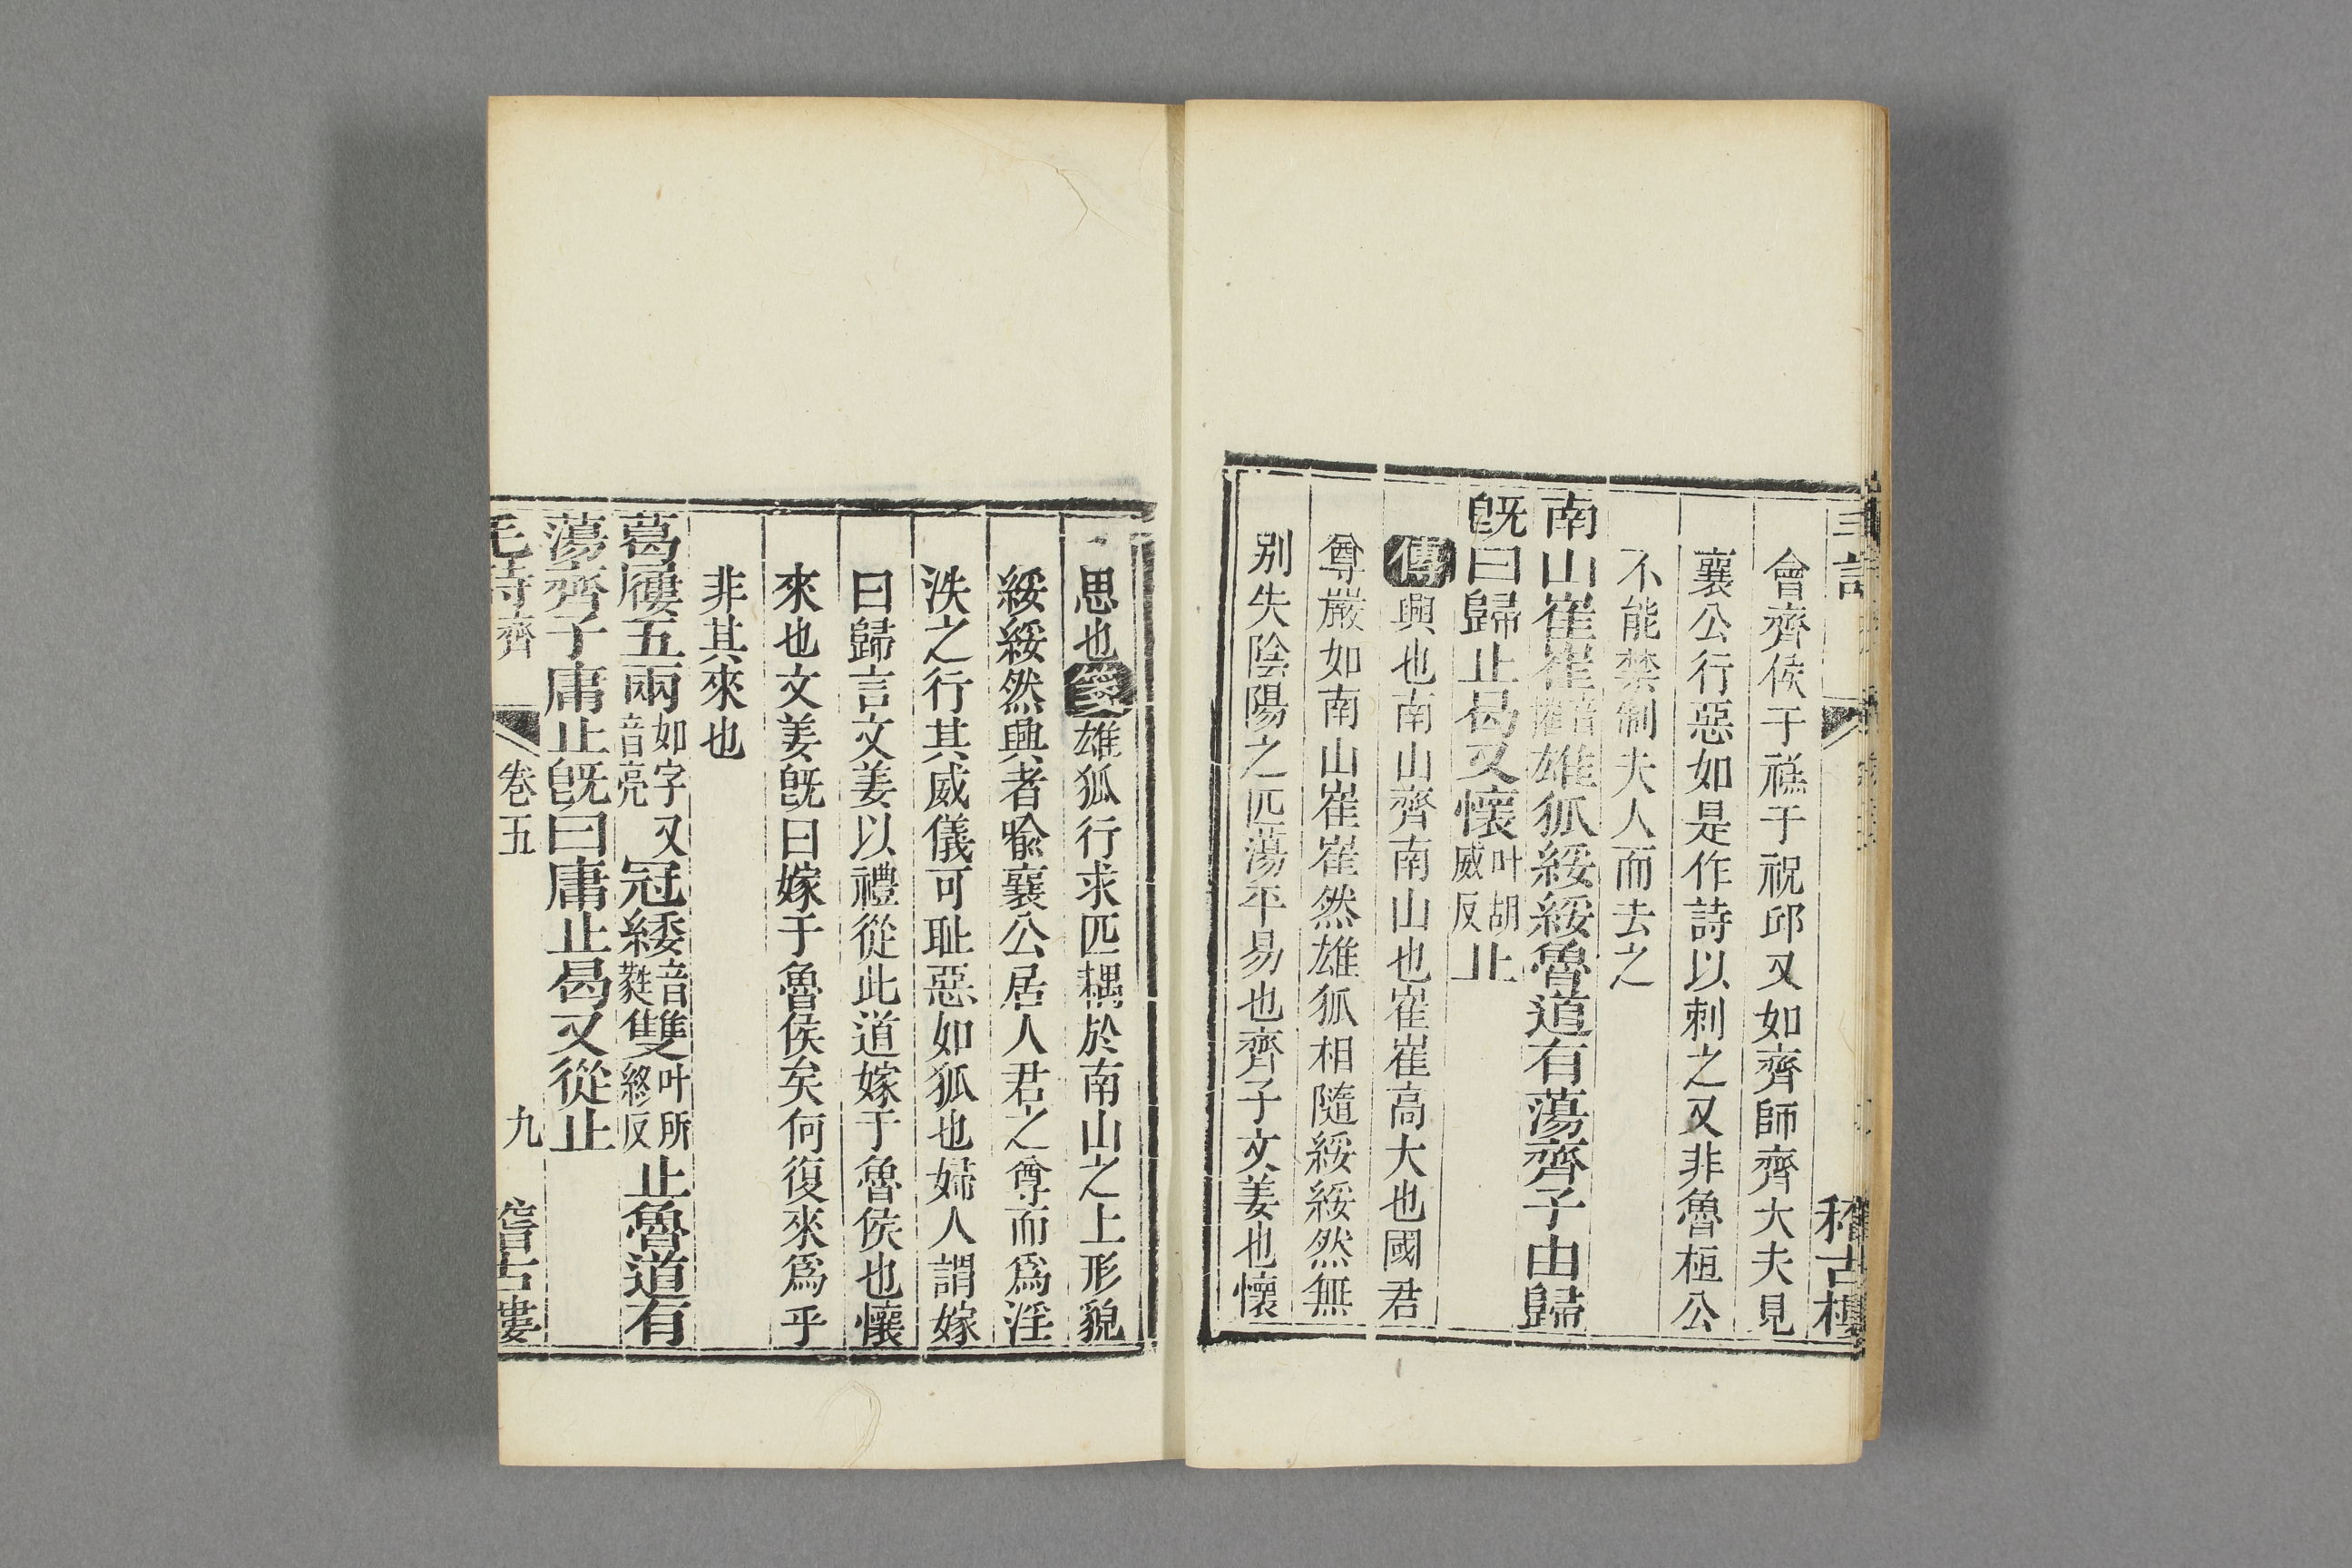 稽古樓
會齊侯于禚于祝邱又如齊師齊大夫見
襄公行惡如是作詩以刺之又非魯桓公
不能禁制夫人而去之
南山崔崔雄狐綏綏魯道有蕩齊子由歸
旣曰歸止曷又懷叶胡威反止
傳興也南山齊南山也崔崔高大也國君
尊嚴如南山崔崔然雄狐相隨綏綏然無
别失陰陽之匹蕩平易也齊子文姜也懷
思也箋雄狐行求匹耦於南山之上形貌
綏綏然興者喩襄公居人君之尊而爲淫
泆之行其威儀可耻惡如狐也婦人謂嫁
曰歸言文姜以禮從此道嫁于魯侯也懷
來也文姜旣曰嫁于魯侯矣何復來爲乎
非其來也
葛屨五兩如字又音亮冠緌音蕤雙叶所終反止魯道有
蕩齊子庸止旣曰庸止曷又從止
毛詩齊 卷五 九 稽古樓